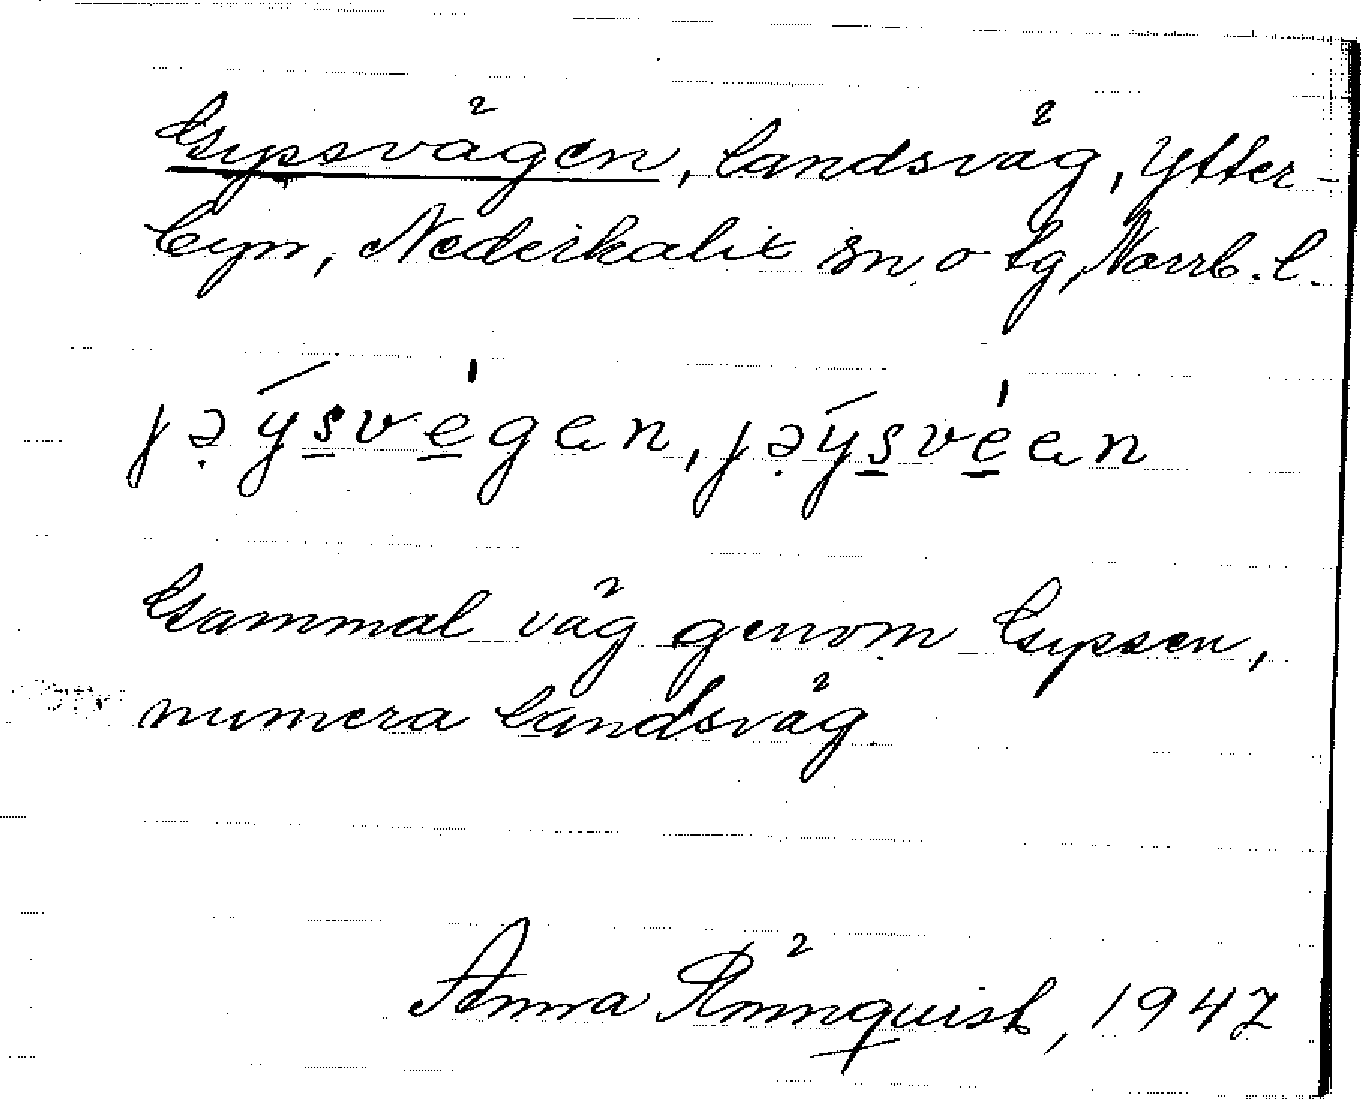 Gypsvägen, landsväg, Ytter-
byn, Nederkalix sn o tg, Norrb. l.
jə̣ýs̲vé̲gen, jə̣ýs̲vé̲en
Gammal väg genom Gypsen,
numera landsväg.
Anna Rönnquist, 1947